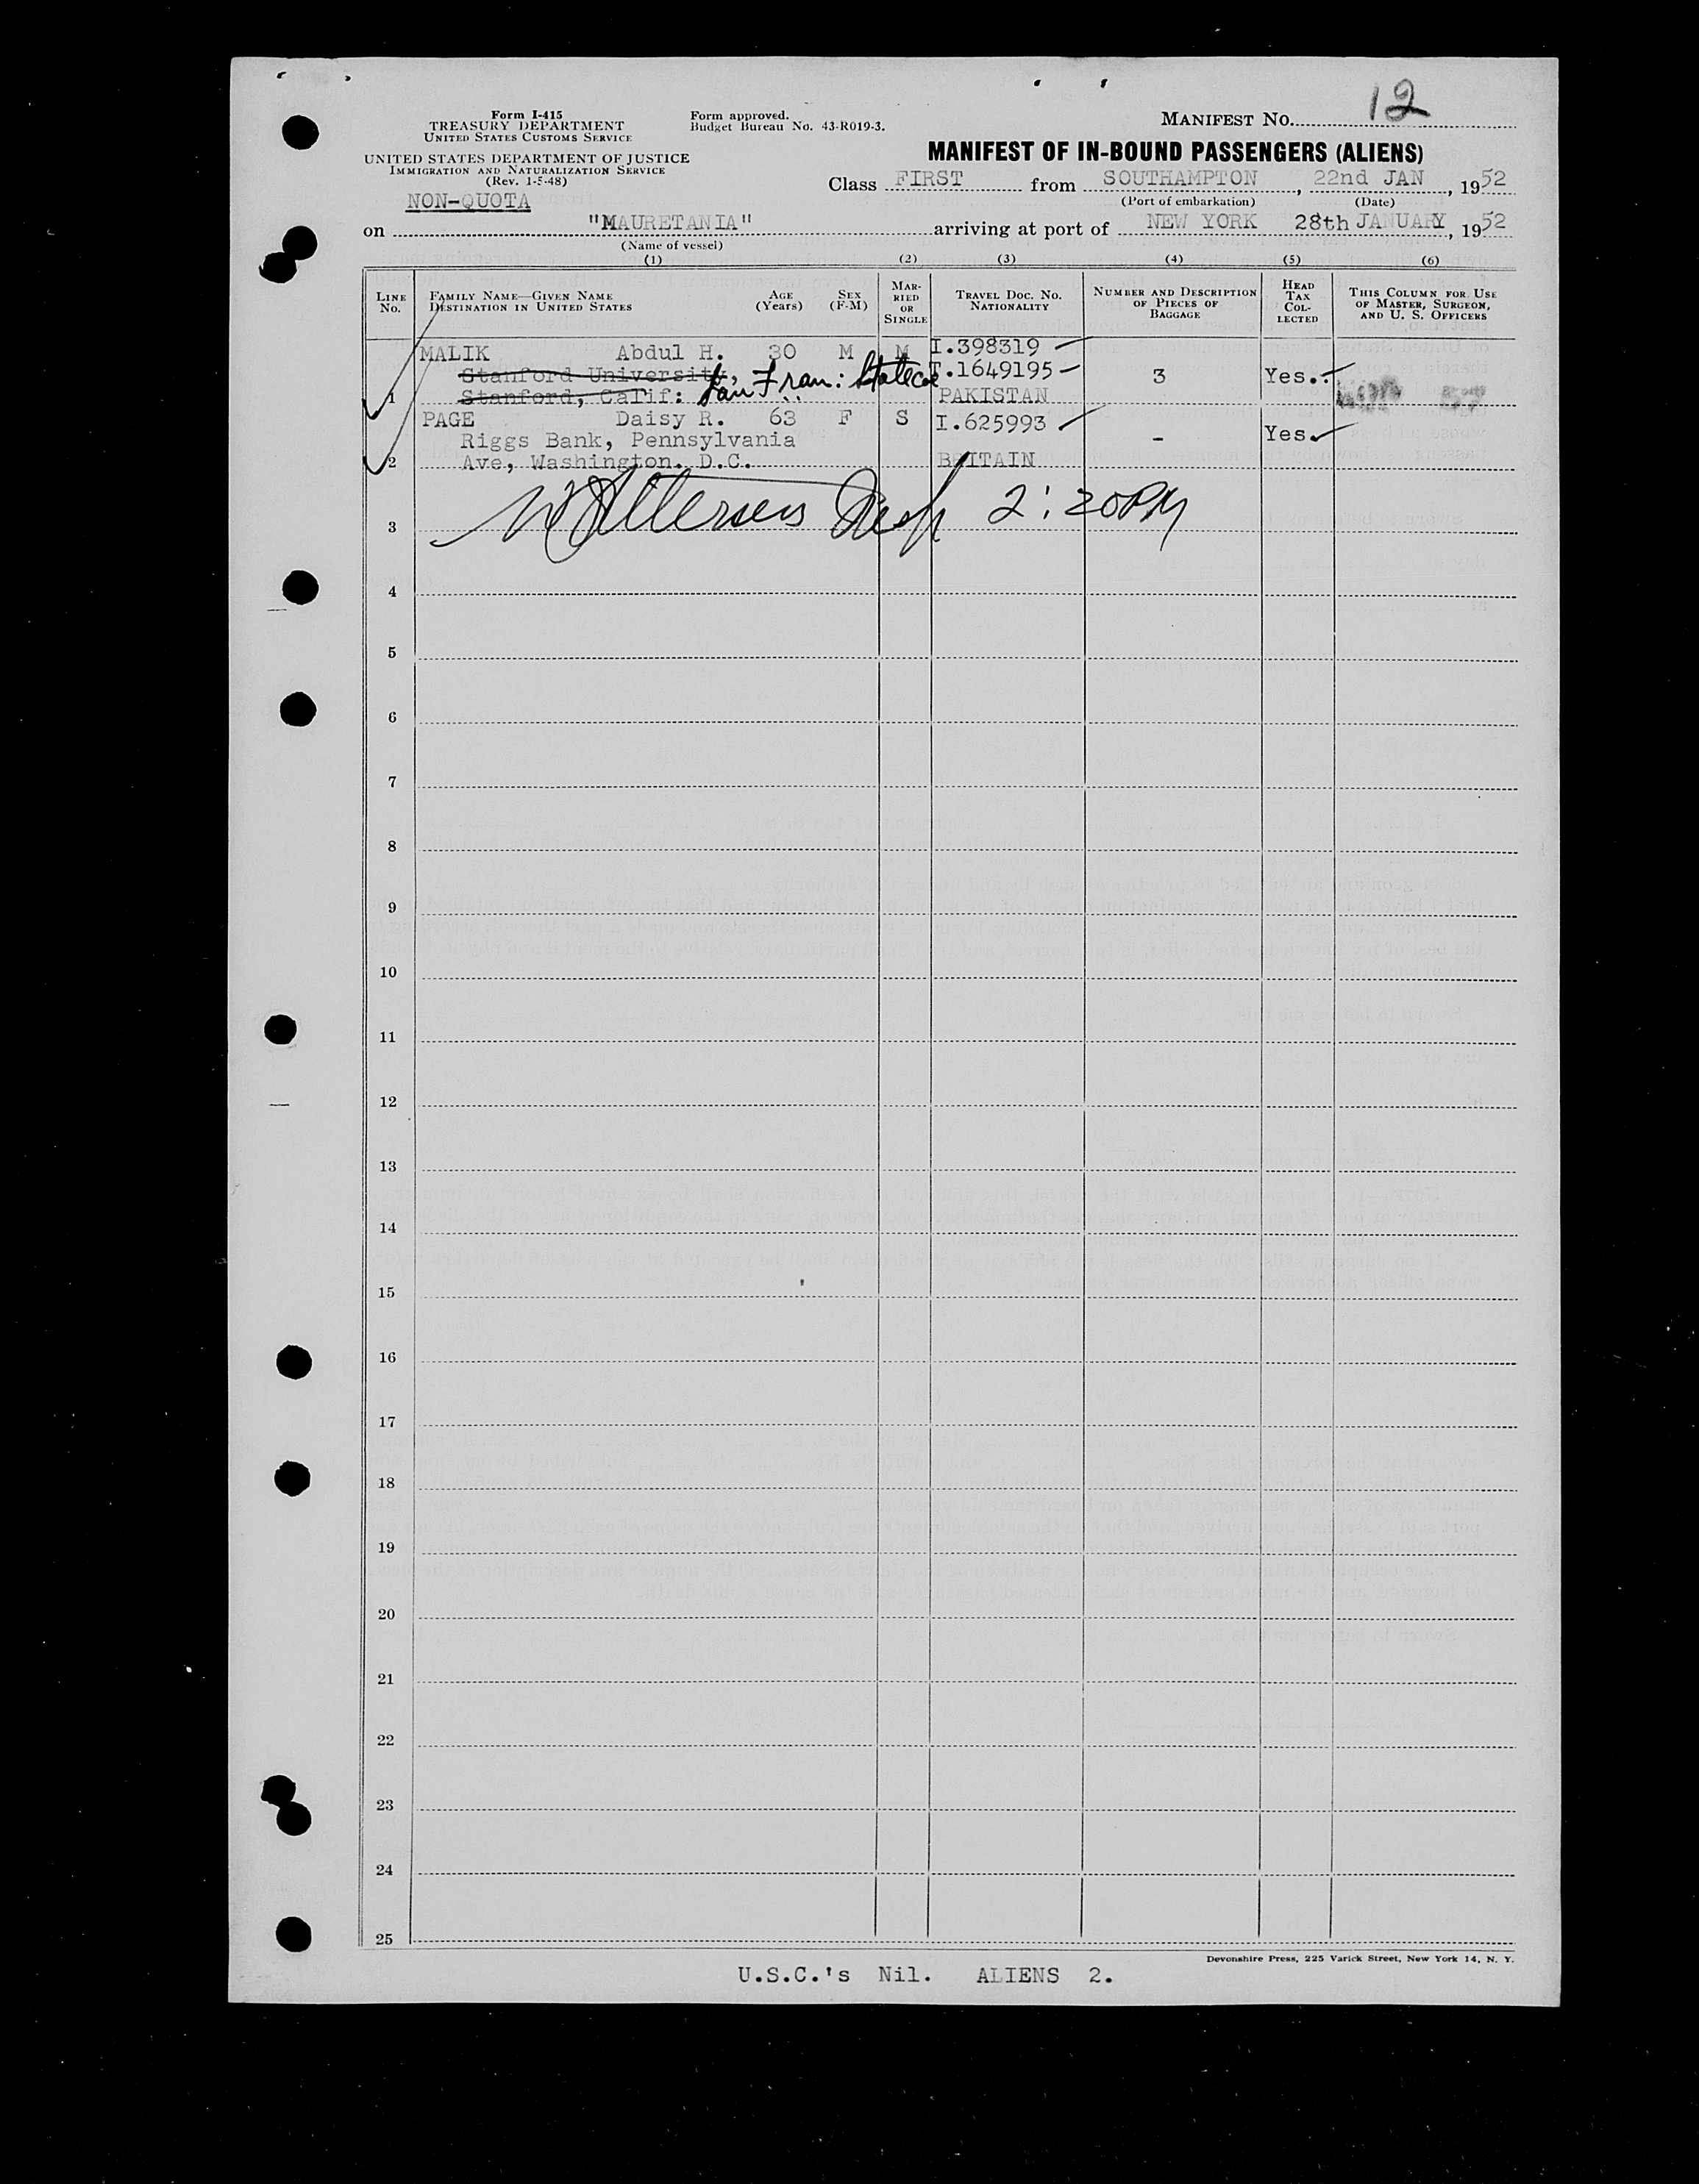 Form I-415
TREASURY DEPARTMENT
UNITED STATES CUSTOMS SERVICE
UNITED STATES DEPARTMENT OF JUSTICE
IMMIGRATION AND NATURALIZATION SERVICE
(Rev. 1-5-48)
NON-QUOTA
Form approved.
Budget Bureau No. 43-R019-3.
MANIFEST NO. 12
MANIFEST OF IN-BOUND PASSENGERS (ALIENS)
Class FIRST from SOUTHAMPTON, 22nd JAN, 1952
(Port of embarkation) (Date)
on "MAURETANIA" arriving at port of NEW YORK 28th JANUARY, 1952
(Name of vessel)
(1) (2) (3) (4) (5) (6)
LINE NO. FAMILY NAME—GIVEN NAME DESTINATION IN UNITED STATES AGE (Years) SEX (F-M) MARRIED OR SINGLE TRAVEL DOC. NO. NATIONALITY NUMBER AND DESCRIPTION OF PIECES OF BAGGAGE HEAD TAX COLLECTED THIS COLUMN FOR USE OF MASTER, SURGEON, AND U. S. OFFICERS
MALIK Abdul H. 30 M M I.398319
Stanford University, San Fran: State T.1649195 3 Yes.
1 Stanford, Calif: PAKISTAN
PAGE Daisy R. 63 F S I.625993
Riggs Bank, Pennsylvania - Yes
2 Ave, Washington. D.C. BRITAIN
3 2:20PM
4
5
6
7
8
9
10
11
12
13
14
15
16
17
18
19
20
21
22
23
24
25
Devonshire Press, 225 Varick Street, New York 14, N. Y.
U.S.C.'s Nil. ALIENS 2.